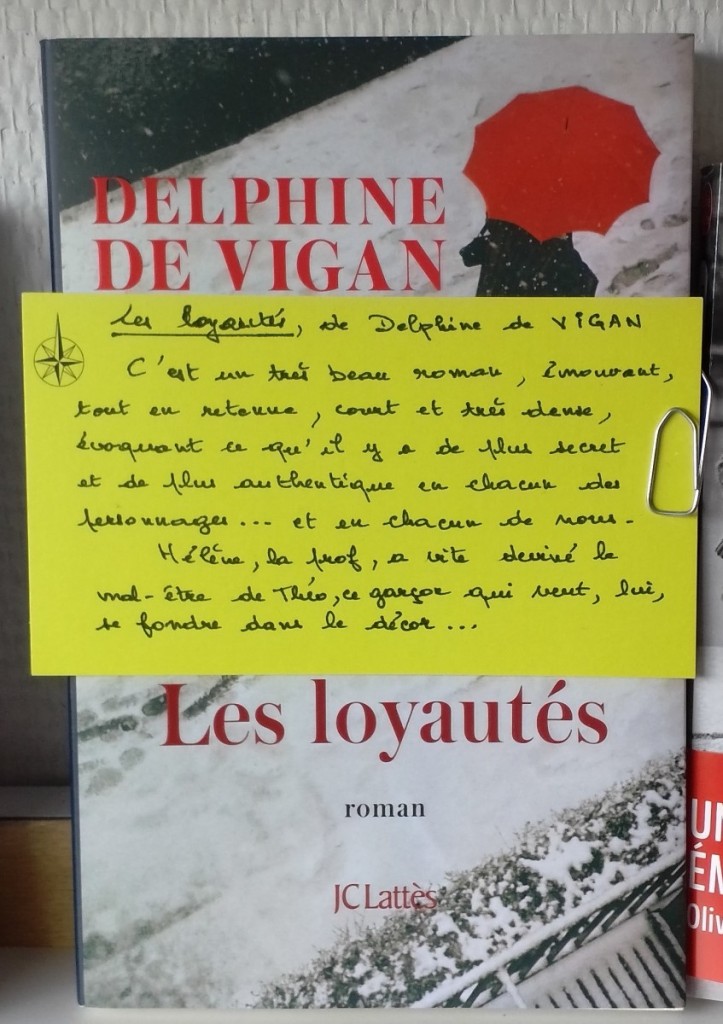 DELPHINE
DE VIGAN
Les loyautés, de Delphine de VIGAN
C'est un très beau roman, émouvant,
tout en retenue, court et très dense,
évoquant ce qu'il y a de plus secret
et de plus authentique en chacun des
personnages... et en chacun de nous.
Hélène, la prof, a vite deviné le
mal-être de Théo, ce garçon qui veut, lui,
se fondre dans le décor...
Les loyautés
roman
JC Lattès
UN
ÉM
Oliv